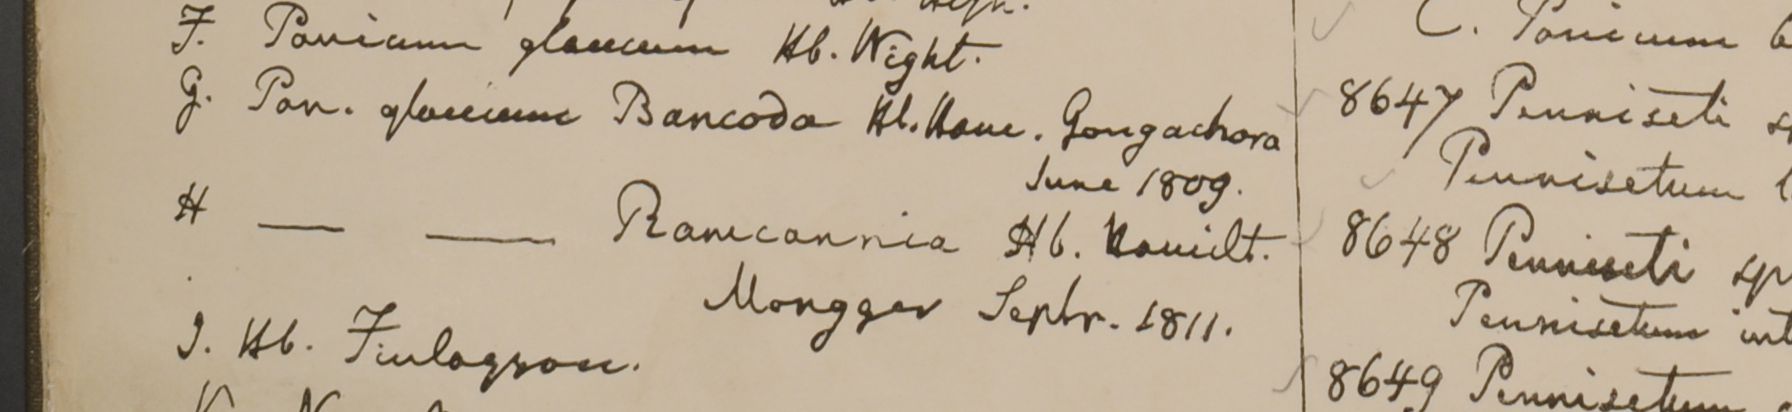 F. Panicum glaucum Hb. Wight.
G. Pan. glaucum Bancoda Hb. Ham. Gongachora
June 1809.
H — — Ramcannia Hb. Hamilt.
Mongger Septr. 1811.
I. Hb. Finlayson.
C. Panicum
8647 Penniseti
Pennisetum
8648 Penniseti sp
Pennisetum int
8649 Pennisetum